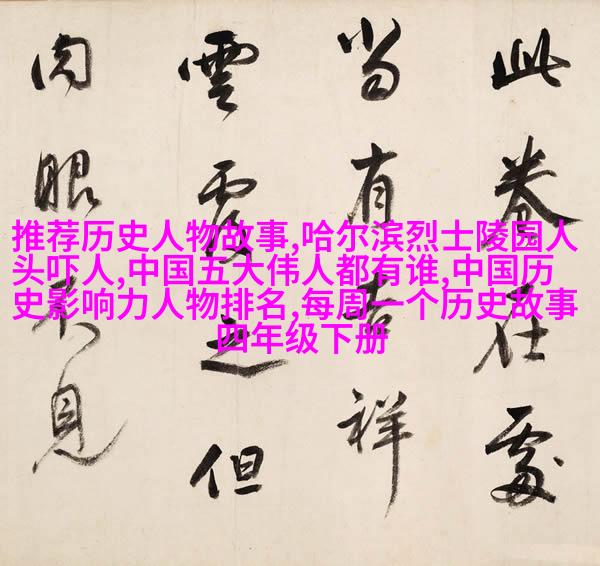 此卷在處
当有吉祥
雲覆之但
肉眼不見
推荐历史人物故事,哈尔滨烈士陵园人
头吓人,中国五大伟人都有谁,中国历
史影响力人物排名,每周一个历史故事
四年级下册